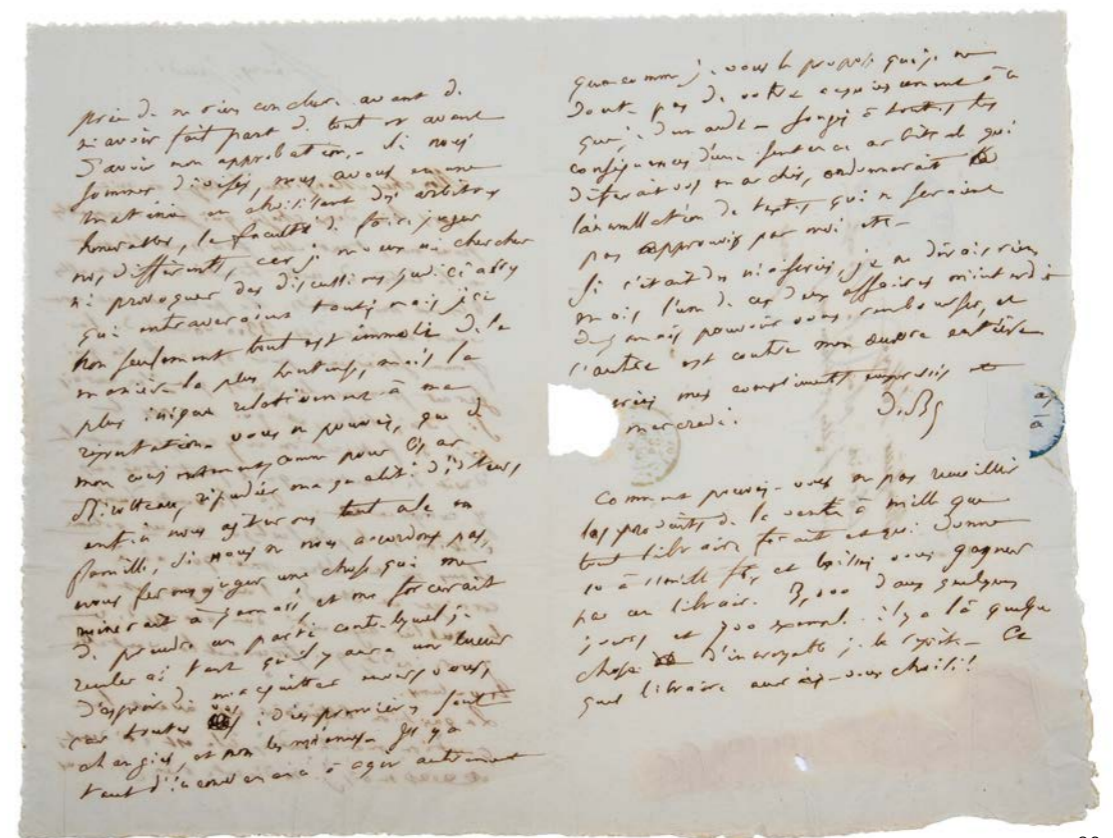 prie de ne rien conclure avant de
m'avoir fait part de tout et avant
d'avoir mon approbation. Si nous
sommes divisés, nous avons en une
matinée en choisissant des arbitres
honorables, la faculté de faire juger
nos différents, car je ne veux ni chercher
ni provoquer des discussions judiciaires
qui entraveraient tout, mais ici
non seulement tout est immolé de la
manière la plus honteuse, mais la
plus inique relativement à ma
réputation. vous ne pouvez, que de
mon consentement, comme pour César
Birotteau, répudier ma qualité d'éditeur,
enfin nous agiterons tout cela en
famille, si nous ne nous accordons pas,
nous ferons juger une chose qui me
ruinerait à jamais, et me forcerait
de prendre un parti contre lequel je
reculerai tant qu'il y aura une lueur
d'espoir de m'acquitter envers vous,
par toutes : idées premières sont
changées, et non les miennes. Il y a
tant d'inconvenance à agir autrement
que comme je vous le propose que je ne
doute pas de votre acquiescement à ce
que je demande. songez à toutes les
conséquences d'une sentence arbitrale qui
vos marchés, ordonnerait
l'annullation de textes qui ne seraient
pas approuvés par moi etc.
Si c'était des niaiseries, je ne dirais rien
mais l'une de ces deux affaires m'interdit
à jamais pouvoir vous rembourser, et
l'autre est contre mon œuvre entière
mes compliments empressés et
mercredi.
de Bc
Comment pouvez-vous ne pas recueillir
les produits de la vente à mille que
tout libraire ferait et qui donne
10 à 11 mille fr. et laissez vous gagner
par un libraire. 3,000 dans quelques
jours et 700 exempl. : il y a là quelque
chose d'incroyable je le répète. Ce
quel libraire aurais-vous choisi!